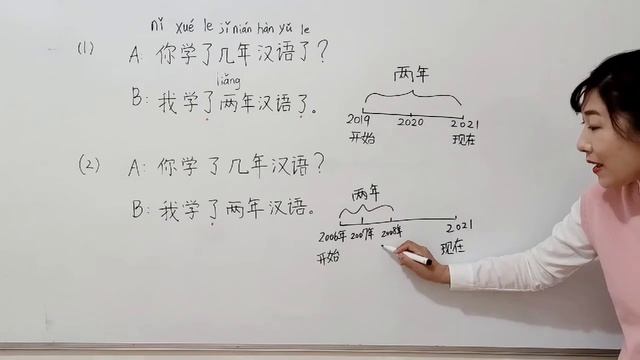 nǐ xué le jǐ nián hàn yǔ le
(1) A: 你学了几年汉语了?
liǎng
B: 我学了两年汉语了。
两年
2019 2020 2021
开始 现在
(2) A: 你学了几年汉语?
B: 我学了两年汉语。
两年
2006年 2007年 2008年 2021
开始 现在